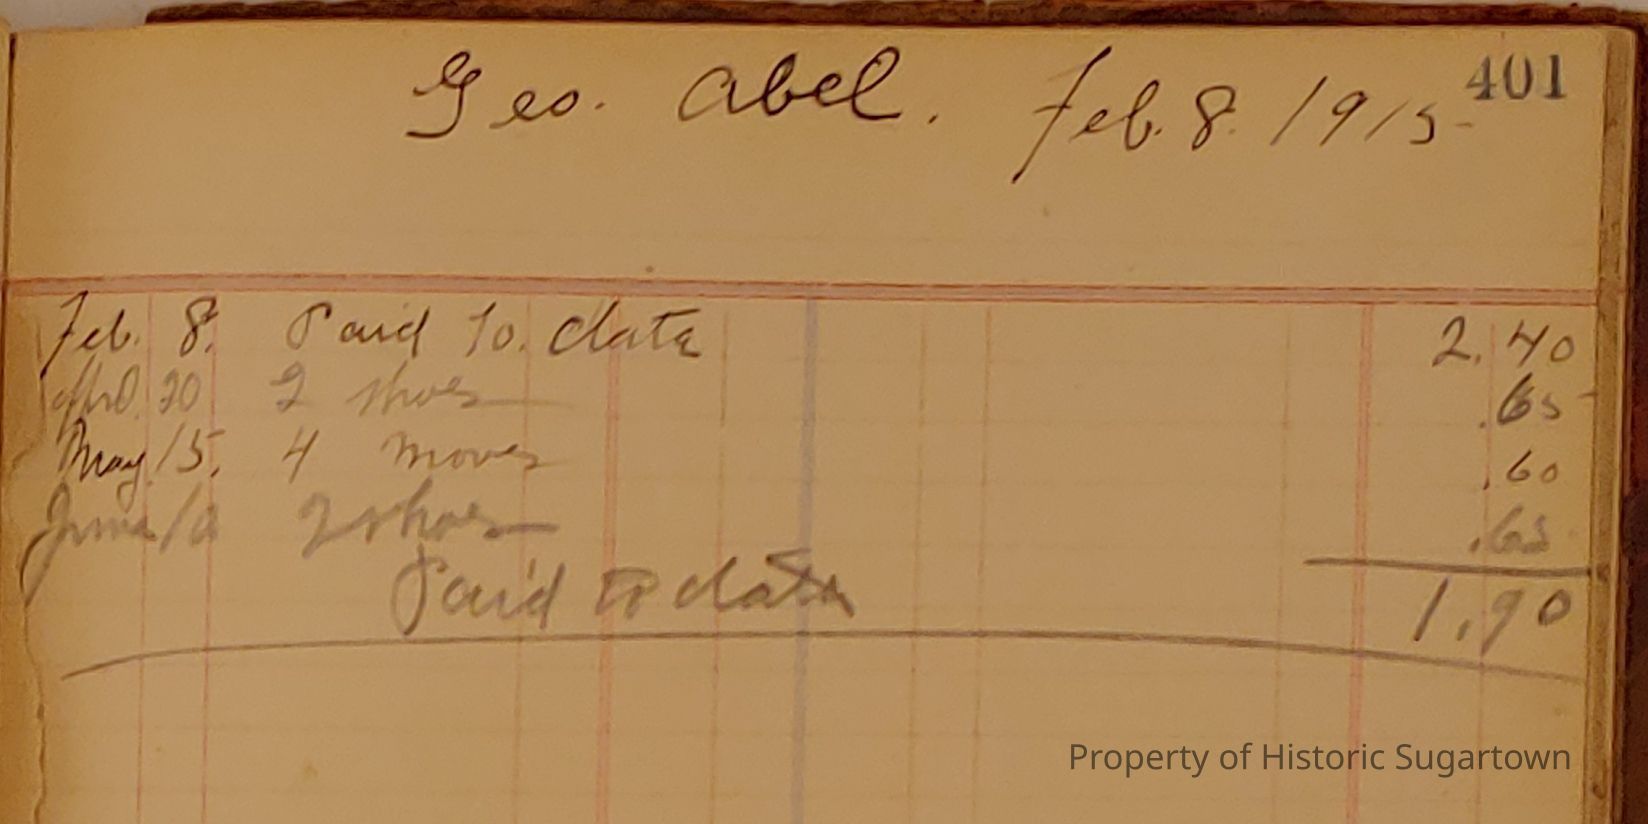 401
Geo. Abel. Feb. 8. 1915
Feb. 8. Paid to. date 2.40
April 20 2 shoes .65
May 15. 4 moves .60
June 2 shoes .65
Paid to date 1.90
Property of Historic Sugartown